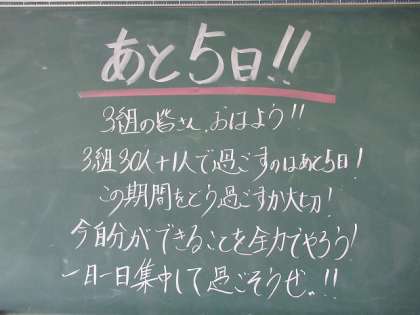 あと5日!!
3組の皆さん、おはよう!!
3組30人+1人で過ごすのはあと5日!
この期間をどう過ごすか大切!
今自分ができることを全力でやろう!
一日一日集中して過ごそうぜ!!